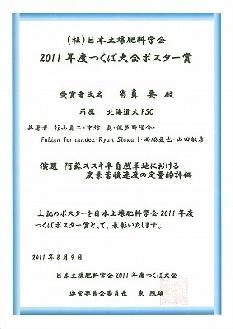 (社)日本土壌肥料学会
2011年度つくば大会ポスター賞
受賞者氏名 殿
所属 北海道大FSC
共著者
Fabian Fernandez・Ryan Stewart・
演題 阿蘇ススキ半自然草地における
炭素蓄積速度の定量的評価
上記のポスターを日本土壌肥料学会2011年度
つくばポスター賞として、表彰いたします。
2011年8月9日
日本土壌肥料学会2011年度つくば大会
運営委員会委員長